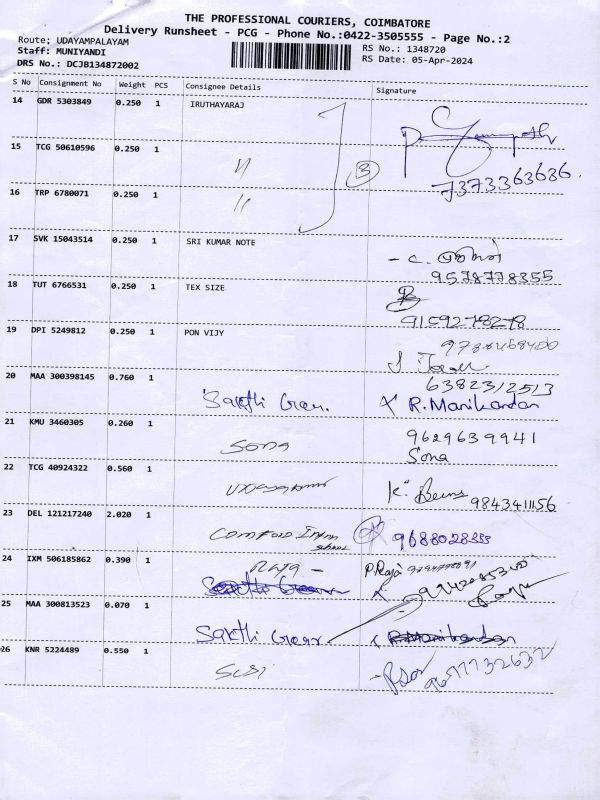 THE PROFESSIONAL COURIERS, COIMBATORE
Delivery Runsheet - PCG - Phone No.:0422-3505555 - Page No.:2
Route; UDAYAMPALAYAM
Staff: MUNIYANDI RS No.: 1348720
DRS No.: DCJB134872002 RS Date: 05-Apr-2024
S No Consignment No Weight PCS Consignee Details Signature
14 GDR 5303849 0.250 1 IRUTHAYARAJ
15 TCG 50610596 0.250 1 〃 3
7373363636
16 TRP 6780071 0.250 1 〃
17 SVK 15043514 0.250 1 SRI KUMAR NOTE
9578778355
18 TUT 6766531 0.250 1 TEX SIZE
9159278278
19 DPI 5249812 0.250 1 PON VIJY
6382312513
20 MAA 300398145 0.760 1
Sakthi Gear. R. Manikandan
21 KMU 3460305 0.260 1 9629639941
Sona Sona
22 TCG 40924322 0.560 1
9843411156
23 DEL 121217240 2.020 1
9688028355
24 IXM 506185862 0.390 1 Raja - P. Raja
25 MAA 300813523 0.070 1
Sakthi Gear R. Manikandan
26 KNR 5224489 0.550 1
9677732632